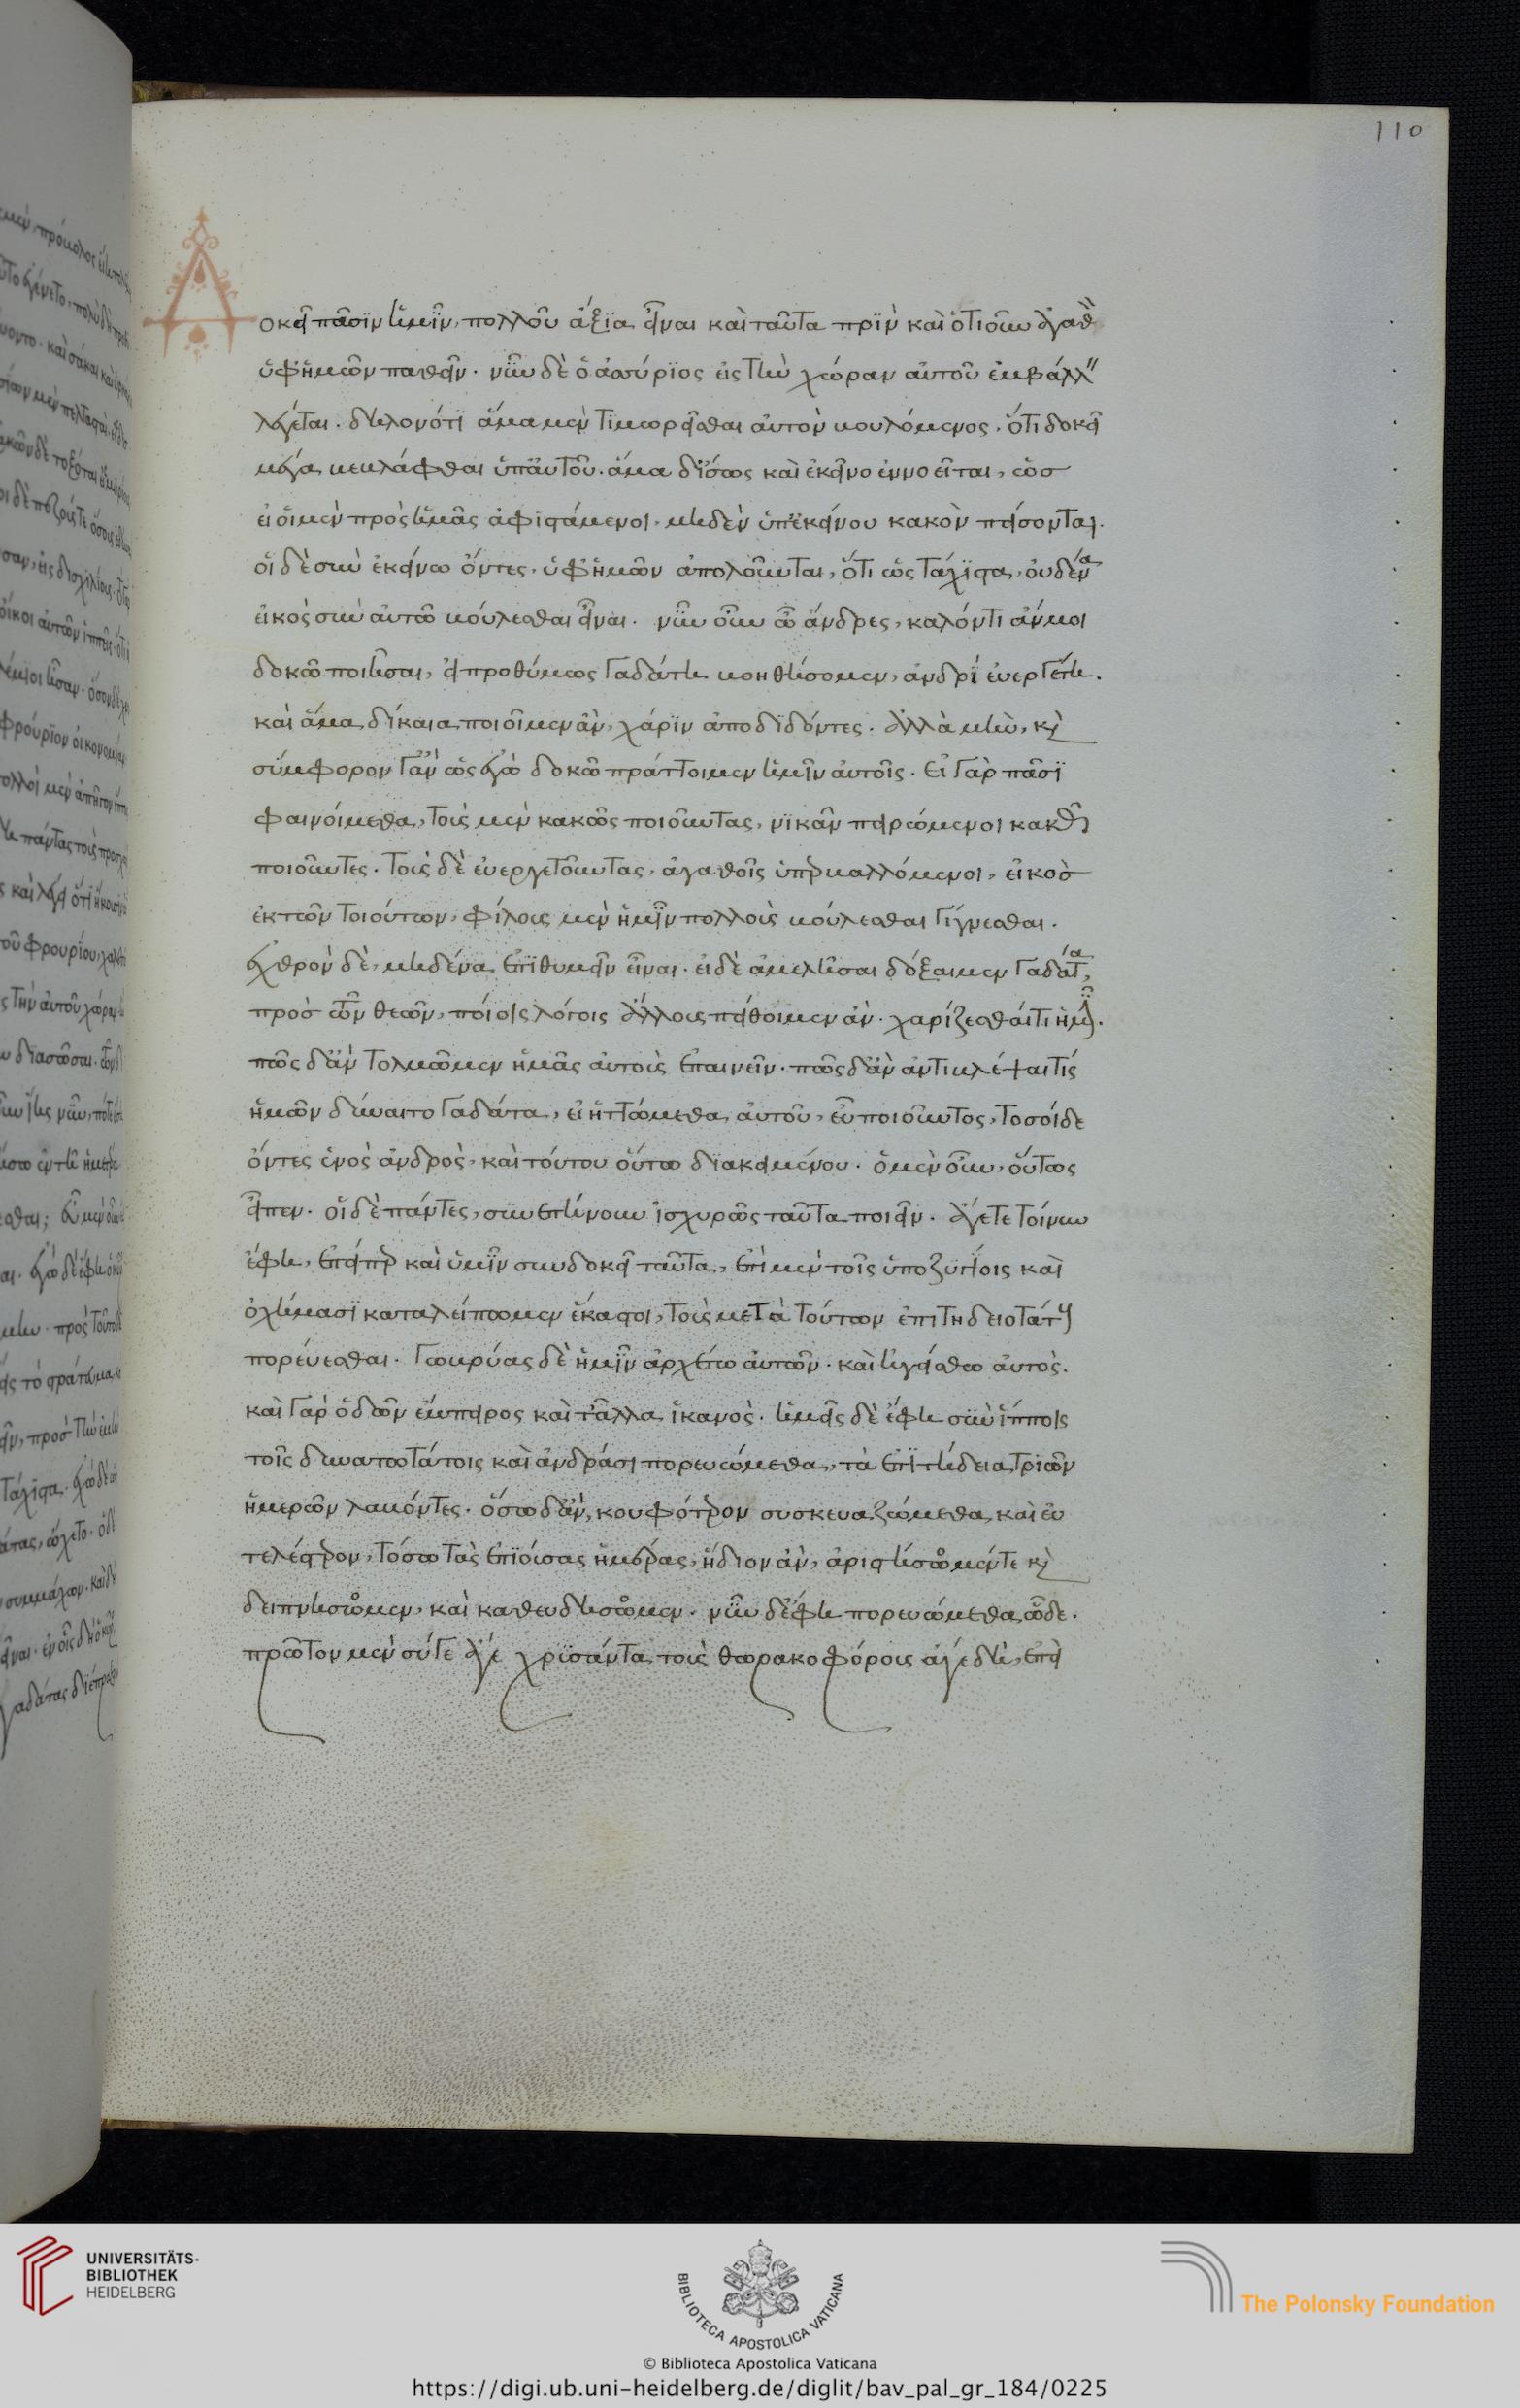 110
Δοκεῖ πᾶσιν ἡμῖν, πολλοῦ ἄξια εἶναι καὶ ταῦτα πρὶν καὶ ὁτιοῦν ἀγαθὸν
ὑφ' ἡμῶν παθεῖν. νῦν δὲ ὁ ἀσσύριος εἰς τὴν χώραν αὐτοῦ ἐμβάλλειν
λέγεται. δηλονότι ἅμα μὲν τιμωρεῖσθαι αὐτὸν βουλόμενος, ὅτι δοκεῖ
μεγα βεβλάφθαι ὑπ' αὐτοῦ. ἅμα δ' ἴσως καὶ ἐκεῖνο ἐννοεῖται, ὡς
εἰ οἱ μὲν πρὸς ἡμᾶς ἀφιστάμενοι, μηδὲν ὑπ' ἐκείνου κακὸν πείσονται.
οἱ δὲ σὺν ἐκείνω ὄντες, ὑφ' ἡμῶν ἀπολοῦνται, ὅτι ὡς τάχιστα, οὐδένα
εἰκὸς σὺν αὐτῶ βούλεσθαι εἶναι. νῦν οὖν ὦ ἄνδρες, καλόν τι ἄν μοι
δοκῶ ποιῆσαι, εἰ προθύμως Γαδάτη βοηθήσομεν, ἀνδρὶ εὐεργέτη.
καὶ ἅμα δίκαια ποιοῖμεν ἂν, χάριν ἀποδιδόντες. ἀλλὰ μὴν, καὶ
σύμφορον γ' ἂν ὡς ἐγὼ δοκῶ πράττοιμεν ἡμῖν αὐτοῖς. εἰ γὰρ πᾶσι
φαινοίμεθα, τοὺς μὲν κακῶς ποιοῦντας, νικᾶν πειρώμενοι κακῶς
ποιοῦντες. τοὺς δὲ εὐεργετοῦντας, ἀγαθοῖς ὑπερβαλλόμενοι, εἰκὸς
ἐκ τῶν τοιούτων, φίλους μὲν ἡμῖν πολλοὺς βούλεσθαι γίγνεσθαι.
ἐχθρὸν δὲ, μηδένα ἐπιθυμεῖν εἶναι. εἰ δὲ ἀμελῆσαι δόξαιμεν Γαδάτα,
πρὸς τῶν θεῶν, ποίοις λόγοις ἄλλους πείθοιμεν ἂν. χαρίζεσθαί τι ἡμῖν.
πῶς δ' ἂν τολμῶμεν ἡμᾶς αὐτοὺς ἐπαινεῖν. πῶς δ' ἂν ἀντιβλέψαι τίς
ἡμῶν δύναιτο Γαδάτα, εἰ ἡττώμεθα αὐτοῦ, εὖ ποιοῦντος, τοσοίδε
ὄντες ἑνὸς ἀνδρὸς, καὶ τούτου οὕτω διακειμένου. ὁ μὲν οὖν, οὕτως
εἶπεν. οἱ δὲ πάντες, συνεπήνουν ἰσχυρῶς ταῦτα ποιεῖν. ἄγετε τοίνυν
ἔφη, ἐπείπερ καὶ ὑμῖν συνδοκεῖ ταῦτα, ἐπὶ μὲν τοῖς ὑποζυγίοις καὶ
ὀχήμασι καταλείπωμεν ἕκαστοι, τοὺς μετὰ τούτων ἐπιτηδειοτάτους
πορεύεσθαι. Γωβρύας δὲ ἡμῖν ἀρχέτω αὐτῶν. καὶ ἡγείσθω αὐτὸς.
καὶ γὰρ ὁδῶν ἔμπειρος καὶ τἄλλα ἱκανὸς. ἡμεῖς δὲ ἔφη σὺν ἵπποις
τοῖς δυνατωτάτοις καὶ ἀνδράσι πορευώμεθα, τὰ ἐπιτήδεια τριῶν
ἡμερῶν λαβόντες. ὅσω δ' ἂν, κουφότερον συσκευαζώμεθα, καὶ εὐ
τελέστερον, τόσω τὰς ἐπιούσας ἡμέρας, ἥδιον ἂν, ἀριστήσωμέν τε καὶ
δειπνήσωμεν, καὶ καθευδήσωμεν. νῦν δ' ἔφη πορευώμεθα ὧδε.
πρῶτον μὲν σύ γε ἄγε χρισάντα τοὺς θωρακοφόρους ἄγε δὴ, ἐπεὶ
UNIVERSITÄTS-
BIBLIOTHEK
HEIDELBERG
BIBLIOTECA APOSTOLICA VATICANA
The Polonsky Foundation
© Biblioteca Apostolica Vaticana
https://digi.ub.uni-heidelberg.de/diglit/bav_pal_gr_184/0225